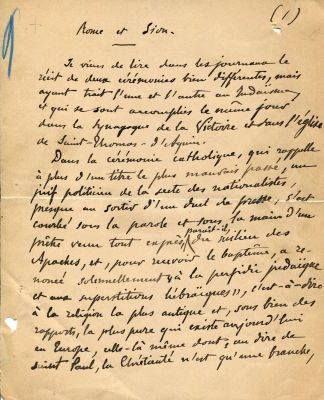 (1)
Rome et Sion.
Je viens de lire dans les journaux le
récit de deux cérémonies bien différentes, mais
ayant trait l'une et l'autre au Judaïsme,
et qui se sont accomplies le même jour
dans la synagogue de la Victoire et dans l'église
de Saint-Thomas-d'Aquin.
Dans la cérémonie catholique, qui rappelle
à plus d'un titre le plus mauvais passé, un
juif politicien de la secte des nationalistes,
presque au sortir d'un duel de presse, s'est
courbé sous la parole et sous la main d'un
prêtre venu tout exprès, paraît-il, du milieu des
Apaches, et, pour recevoir le baptême, a re-
noncé solennellement « à la perfidie judaïque
et aux superstitions hébraïques », c'est-à-dire
à la religion la plus antique et, sous bien des
rapports, la plus pure qui existe aujourd'hui
en Europe, celle-là même dont, au dire de
saint Paul, la Chrétienté n'est qu'une branche,